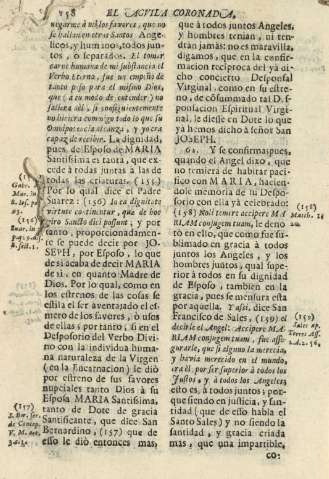 158 EL AGVILA CORONADA,
negarme à ellos favores, que no
se hallan en otros Santos Angelicos,
y humanos, todos juntos,
o separados. El tomar
carne humana de mi substancia el
Verbo Eterno, fue un empeño de
tanto peso para el mismo Dios,
que ( a tu modo de entender ) no
hiziera
Omnipotencia alcança, y yo era
capaz de recibir. La dignidad,
pues, de Esposo de MARIA
Santissima es tanta, que excede
à todas juntas à las de
todas las criaturas. (155)
Por lo qual dize el Padre
Suarez: (156) In ea dignitate
virtute continetur, que de hoc
viro Sancto dici possunt; y por
tanto, proporcionadamente
se puede decir por JOSEPH,
por Esposo, lo que
de sì acaba de decir MARIA
de sì, en quanto Madre de
Dios. Por lo qual, como en
los extremos de las cosas se
estila el ser aventajado el esmero
de los favores, ò usos
de ellas; por tanto, si en el
Desposorio del Verbo Divino
con la individua humana
naturaleza de la Virgen
(en la Encarnacion) le diò
por estreno de sus favores
nupciales tanto Dios à su
Esposa MARIA Santissima,
tanto de Dote de gracia
Santificante, que dice San
Bernardino, (157) que de
esso le diò entonces mas,
que à todos juntos Angeles,
y hombres tenian, ni tendràn
jamàs: no es maravilla,
digamos, que en la confirmacion
reciproca del yà dicho
concierto Desposal
Virginal, como en su estreno,
de consumado tal Desposacion
Espiritual Virginal,
le diesse en Dote lo que
yà hemos dicho à señor San
JOSEPH.
Y se confirma; pues,
quando el Angel dixo, que
no temiera de habitar pacifico
con MARIA, haciendole
memoria de su Desposorio
con ella yà celebrado:
(158) Noli temere accipere MARIAM
conjugem tuam, le denotò
en ello, que como fue sublimado
en gracia à todos
juntos los Angeles, y los
hombres juntos, qual superior
à todos en su dignidad
de Esposo, tambien en la
gracia, pues se mensura esta
por aquella. Y assi, dice San
Francisco de Sales, (159) el
decirle el Angel: Accipere MARIAM
conjugem tuam, fue assegurarle,
que si alguno la merecia,
y havia merecido en el mundo,
era èl, por ser superior à todos los
Justos, y à todos los Angeles,
esto es, à todos juntos; porque
siendo en justicia, y santidad
(que de esso habla el
Santo Sales) y no siendo la
santidad, y gracia criada
mas, que una impartible,
co-
(156)
(157)
S. Ber. ser.
(158)
Match. 1.
(159)
Sales op.